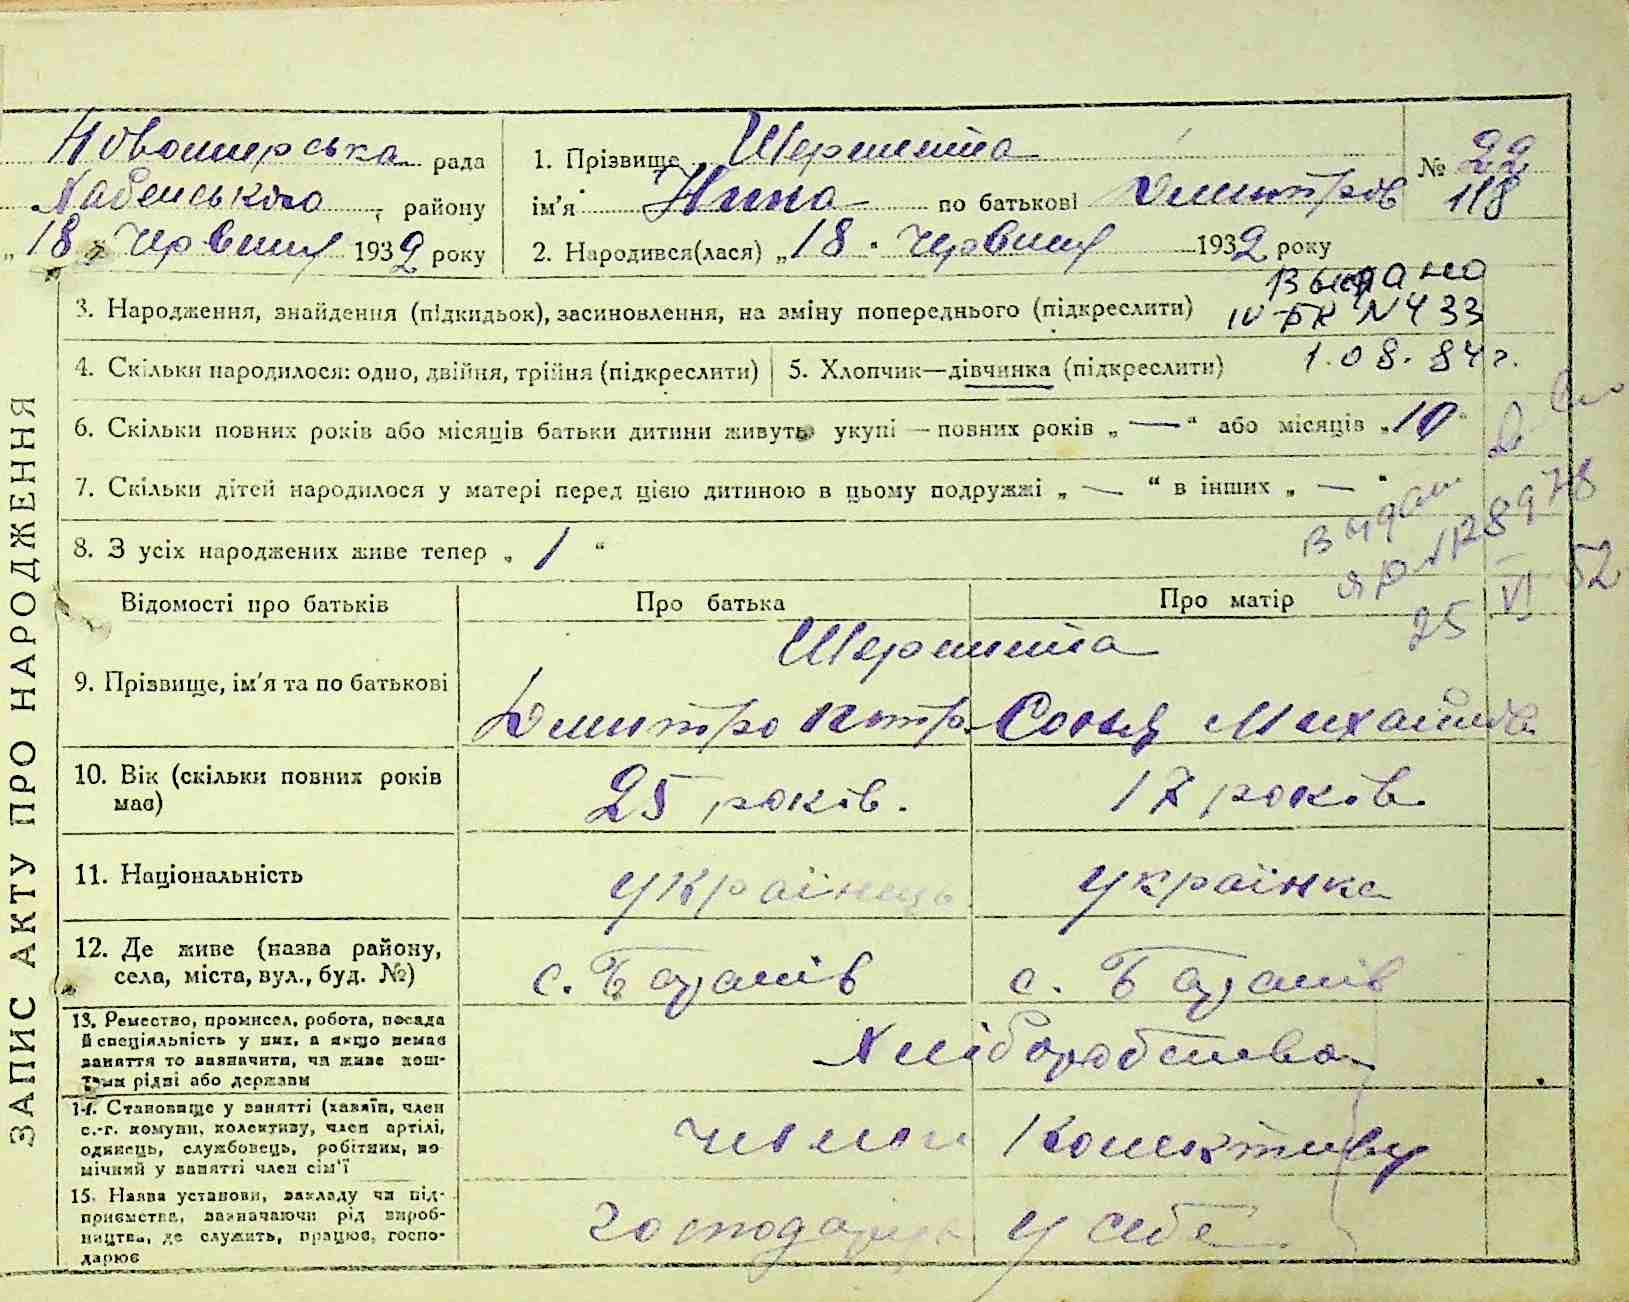 Новомирська рада
Хабенського району
„18" червня 1932 року
1. Прізвище Шершита
ім'я Нина по батькові Дмитрів
2. Народився(лася) „18. червня 1932 року
№ 22
118
3. Народження, знайдення (підкидьок), засиновлення, на зміну попереднього (підкреслити)
Выдано
IV-БК N 433
1.08.84 г.
4. Скільки народилося: одно, двійня, трійня (підкреслити)
5. Хлопчик—дівчинка (підкреслити)
6. Скільки повних років або місяців батьки дитини живуть укупі — повних років „—“ або місяців „10“
7. Скільки дітей народилося у матері перед цією дитиною в цьому подружжі „—“ в інших „—“
8. З усіх народжених живе тепер „1“
25 VI 52
ЗАПИС АКТУ ПРО НАРОДЖЕННЯ
Відомості про батьків
Про батька
Про матір
9. Прізвище, ім'я та по батькові
Шершита
Дмитро Петр.
Сонья Михайлів
10. Вік (скільки повних років має)
25 років.
17 років.
11. Національність
українець
українка
12. Де живе (назва району,
села, міста, вул., буд. №)
с.
с.
13. Ремество, промисел, робота, посада
й спеціяльність у них, а якщо немає
заняття то зазначити, чи живе кош-
тами рідні або держави
Хліборобство
14. Становище у занятті (хазяїн, член
с.-г. комуни, колективу, член артілі,
одинець, службовець, робітник, по-
мічний у занятті член сім'ї
члени колективу
15. Назва установи, закладу чи під-
приємства, зазначаючи рід вироб-
ництва, де служить, працює, госпо-
дарює
господарює у себе